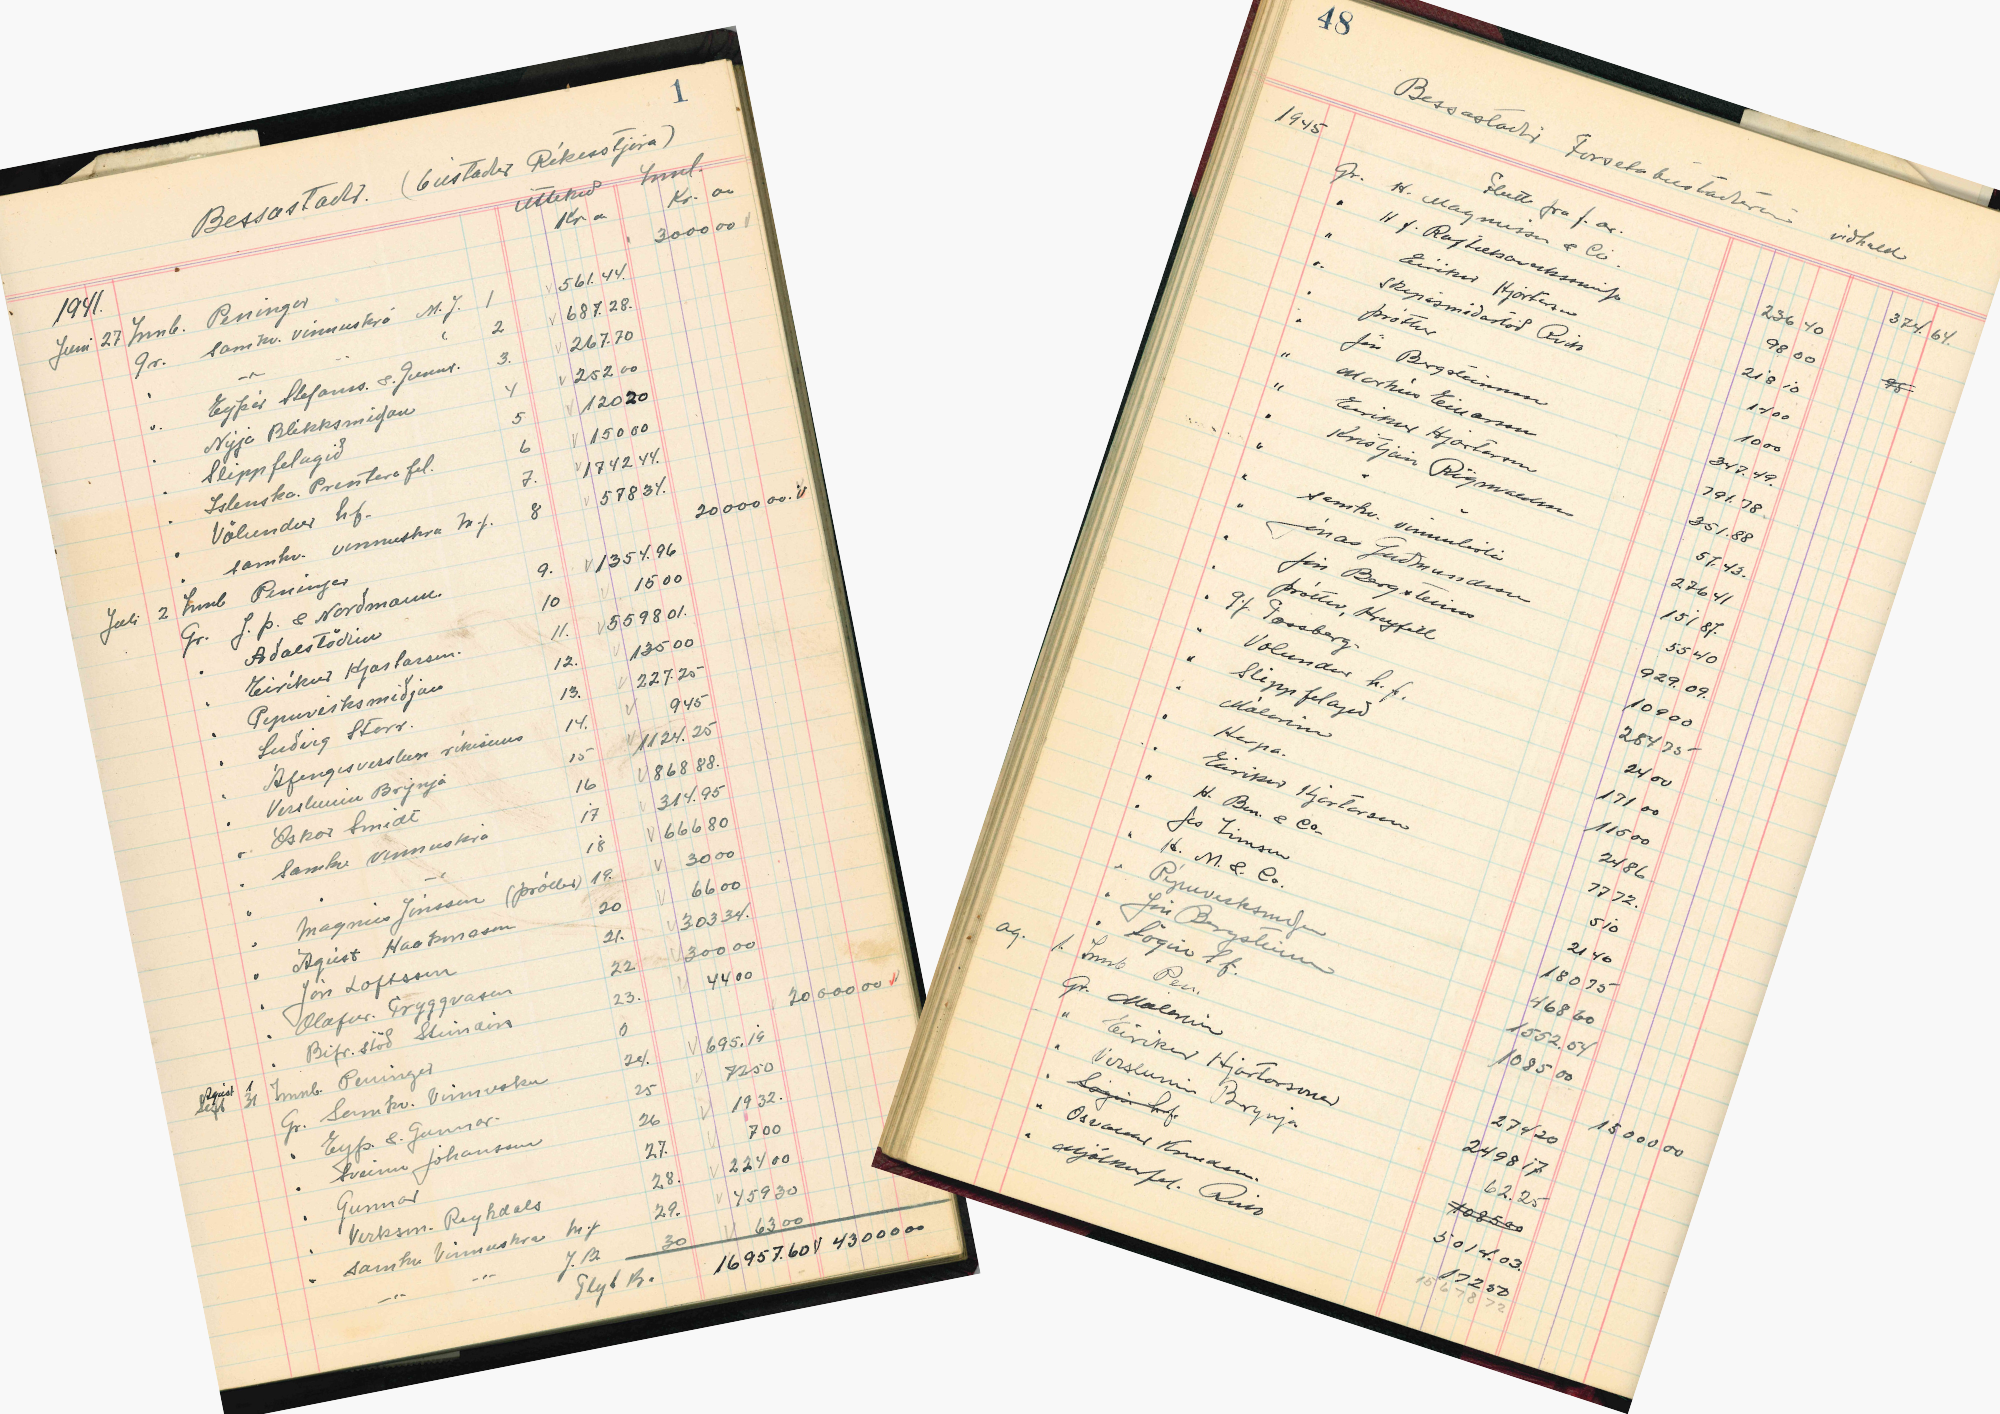 1
Bessastadir. (bústadur Ríkisstjóra)
Úttekið Innl.
Kr. a Kr. au
1941. 3000 00
Juni 27 Innb. Peninger
Gr. samkv. vinnuskrá M.J. 1 561.44.
" —"— " 2 687.28.
" Eyþór Stefanss. & Gunnar. 3. 267.70
" Nýja Blikksmiðjan 4 252 00
" Slippfelagið 5 120 20
" Islenska. Prentarafel. 6 150 00
" Völundur h.f. 7. 1742 44.
" samkv. vinnuskra M.J. 8 578 34.
Juli 2 Innb Peninger 20000 00.
Gr. J. Þ. & Norðmann. 9. 1354.96
" Aðalstöðin 10 15 00
" Eiríkur Hjartarson. 11. 5598 01.
" Pípuverksmiðjan 12. 135 00
" Ludvig Storr. 13. 227.25
" Áfengisverslun ríkisins 14. 9 45
" Verslunin Brynja 15 1124.25
" Óskar Smidt 16 868 88.
" Samkv vinnuskrá 17 314.95
" " —"— 18 666 80
" Magnús Jónsson (þróttur) 19. 30 00
" Ágúst Haakonason 20 66 00
" Jón Loftsson 21. 303 34.
" Olafur. Tryggvason 22 300 00
" Bifr. stöð Steindórs 23. 44 00
Agúst 1 Innb. Peninger 0 20 000 00
Sept 31 Gr. Samkv. Vinnuskra 24. 695.19
" Eyþ. & Gunnar. 25 72 50
" Sveinn Johansson 26 19 32.
" Gunnar 27. 7 00
" Verksm. Reykdals 28. 224 00
" samkv Vinnuskra M.J 29. 459 30
—"— J.B. 30 63 00
Flyt Kr. 16957.60 43000 00
48
Bessastadir Forsetabústadurinn viðhald
1945 Flutt frá f. ár. 374.64.
Gr. H. Magnússon & Co. 236 40
" H.f. Raftækjaverksmiðja 98 00
" Eirikur Hjörtarson 218 10
" Skipasmidastöð Rvík 14 00
" þróttur 10 00
" Jón Bergsteinsson 347.49.
" Markús Einarsson 791.78.
" Eirikur Hjartarson 351.88
" Kristján Rögnvaldson 57.43.
" " " 276 41
" samkv. vinnulista 151 87.
" Jónas Guðmundson 55 40
" Jón Bergsteins 929.09.
" þróttur, Hreyfill 109 00
" G.J. Fossberg 284 75
" Völundur h.f. 24 00
" Slippfelagið 171 00
" Málarinn 115 00
" Harpa. 24 86
" Eirikur Hjartarson 77 72.
" H. Ben. & Co. 5 10
" Jes Zimsen 21 40
" H. M. & Co. 180 75
" Pípuverksmiðjan 468 60
" Jón Bergsteinss 1552.04
" Sögin h.f. 1085 00
ag. 1. Innb Pen. 15 000 00
Gr. Málarinn 274 20
" Eirikur Hjartarsonar 2498 17
" Verslunin Brynja 62.25
" Sögin h.f. 1085 00
" Osvaldur Knudsen. 5014.03.
" Mjólkurfel. Rvík 172 50
15678 72